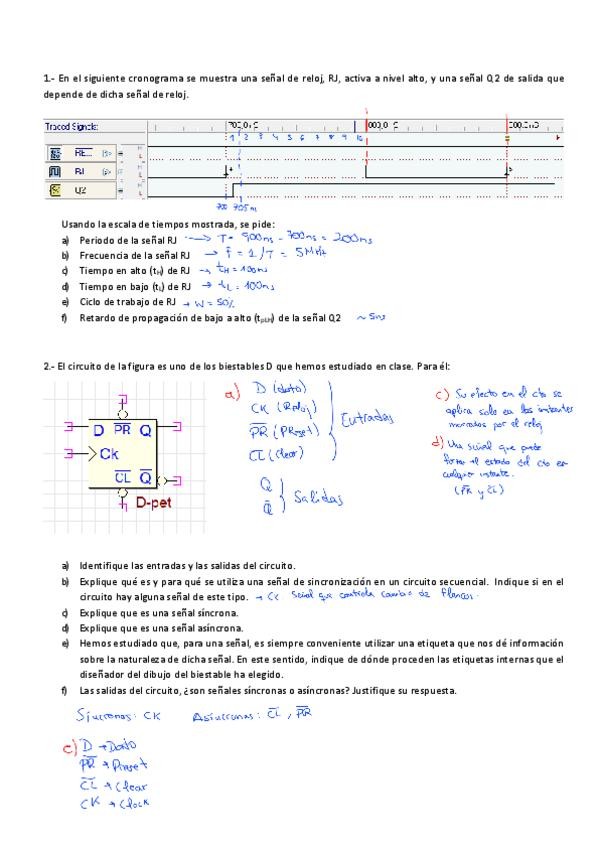 1.- En el siguiente cronograma se muestra una señal de reloj, RJ, activa a nivel alto, y una señal Q2 de salida que
depende de dicha señal de reloj.
Traced Signals:
1 2 3 4 5 6 7 8 9 10
RE...
RJ
Q2
700 705 ns
Usando la escala de tiempos mostrada, se pide:
a) Periodo de la señal RJ → T = 900ns - 700ns = 200ns
b) Frecuencia de la señal RJ → f = 1/T = 5MHz
c) Tiempo en alto (tH) de RJ → tH = 100ns
d) Tiempo en bajo (tL) de RJ → tL = 100ns
e) Ciclo de trabajo de RJ → W = 50%
f) Retardo de propagación de bajo a alto (tpLH) de la señal Q2 ~ 5ns
2.- El circuito de la figura es uno de los biestables D que hemos estudiado en clase. Para él:
D PR Q
Ck
CL Q
D-pet
a) D (dato)
CK (Reloj)
PR (PReset)
CL (Clear)
Entradas
Q
Q
Salidas
c) Su efecto en el cto se
aplica solo en los instantes
marcados por el reloj
d) Una señal que puede
forzar el estado del cto en
cualquier instante.
(PR y CL)
a) Identifique las entradas y las salidas del circuito.
b) Explique qué es y para qué se utiliza una señal de sincronización en un circuito secuencial. Indique si en el
circuito hay alguna señal de este tipo. → CK Señal que controla cambio de flancos.
c) Explique que es una señal síncrona.
d) Explique que es una señal asíncrona.
e) Hemos estudiado que, para una señal, es siempre conveniente utilizar una etiqueta que nos dé información
sobre la naturaleza de dicha señal. En este sentido, indique de dónde proceden las etiquetas internas que el
diseñador del dibujo del biestable ha elegido.
f) Las salidas del circuito, ¿son señales síncronas o asíncronas? Justifique su respuesta.
Síncronas: CK Asíncronas: CL, PR
e) D → Dato
PR → Preset
CL → Clear
CK → Clock